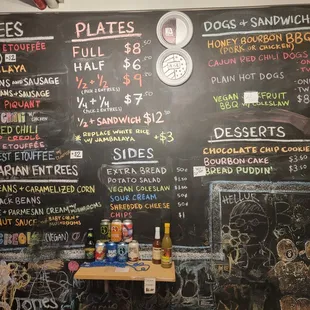 EES
ETOUFFÉE
ALAYA
ANS AND SAUSAGE
ANS + SAUSAGE
PIQUANT
CHILI
RED CHILI
CREOLE
ETOUFFEE
EST ETOUFFEE 12
ARIAN ENTREES
EANS + CARAMELIZED CORN
ACK BEANS
+ PARMESAN CREAM
NUT SAUCE
(VEGAN)
PLATES
FULL $8
HALF $6
1/2 + 1/2 $9
(PICK 2 ENTREES)
1/4 + 1/4 $7
(PICK 2 ENTREES)
1/2 + SANDWICH $12
* REPLACE WHITE RICE
W/ JAMBALAYA +$3
SIDES
EXTRA BREAD
POTATO SALAD
VEGAN COLESLAW
SOUR CREAM
SHREDDED CHEESE
CHIPS $1
DOGS + SANDWICH
HONEY BOURBON BBQ
(PORK OR CHICKEN)
CAJUN RED CHILI DOGS
PLAIN HOT DOGS
VEGAN FRUIT
BBQ W/ COLESLAW
DESSERTS
CHOCOLATE CHIP COOKIE
BOURBON CAKE $3.50
BREAD PUDDIN' $3.50
HELLUR